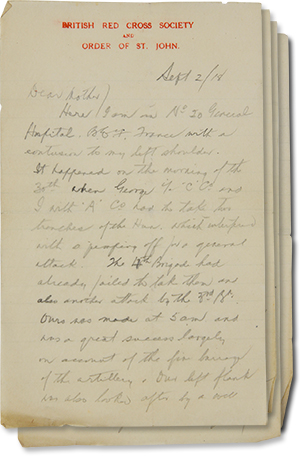 BRITISH RED CROSS SOCIETY
AND
ORDER OF ST. JOHN.
Sept 2/18
Dear Mother,
Here I am in No 20 General
Hospital. B.E.F. France with a
contusion to my left shoulder.
It happened on the morning of the
30th when George in "C" Co and
I with "A" Co had to take two
trenches of the Huns. which interfered
with a jumping off for a general
attack. The 4th Brigade had
already failed to take them and
also another attack by the 3rd Bn.
Ours was made at 5 am and
was a great success largely
on account of the fine barrage
of the artillery. Our left flank
was also looked after by a well